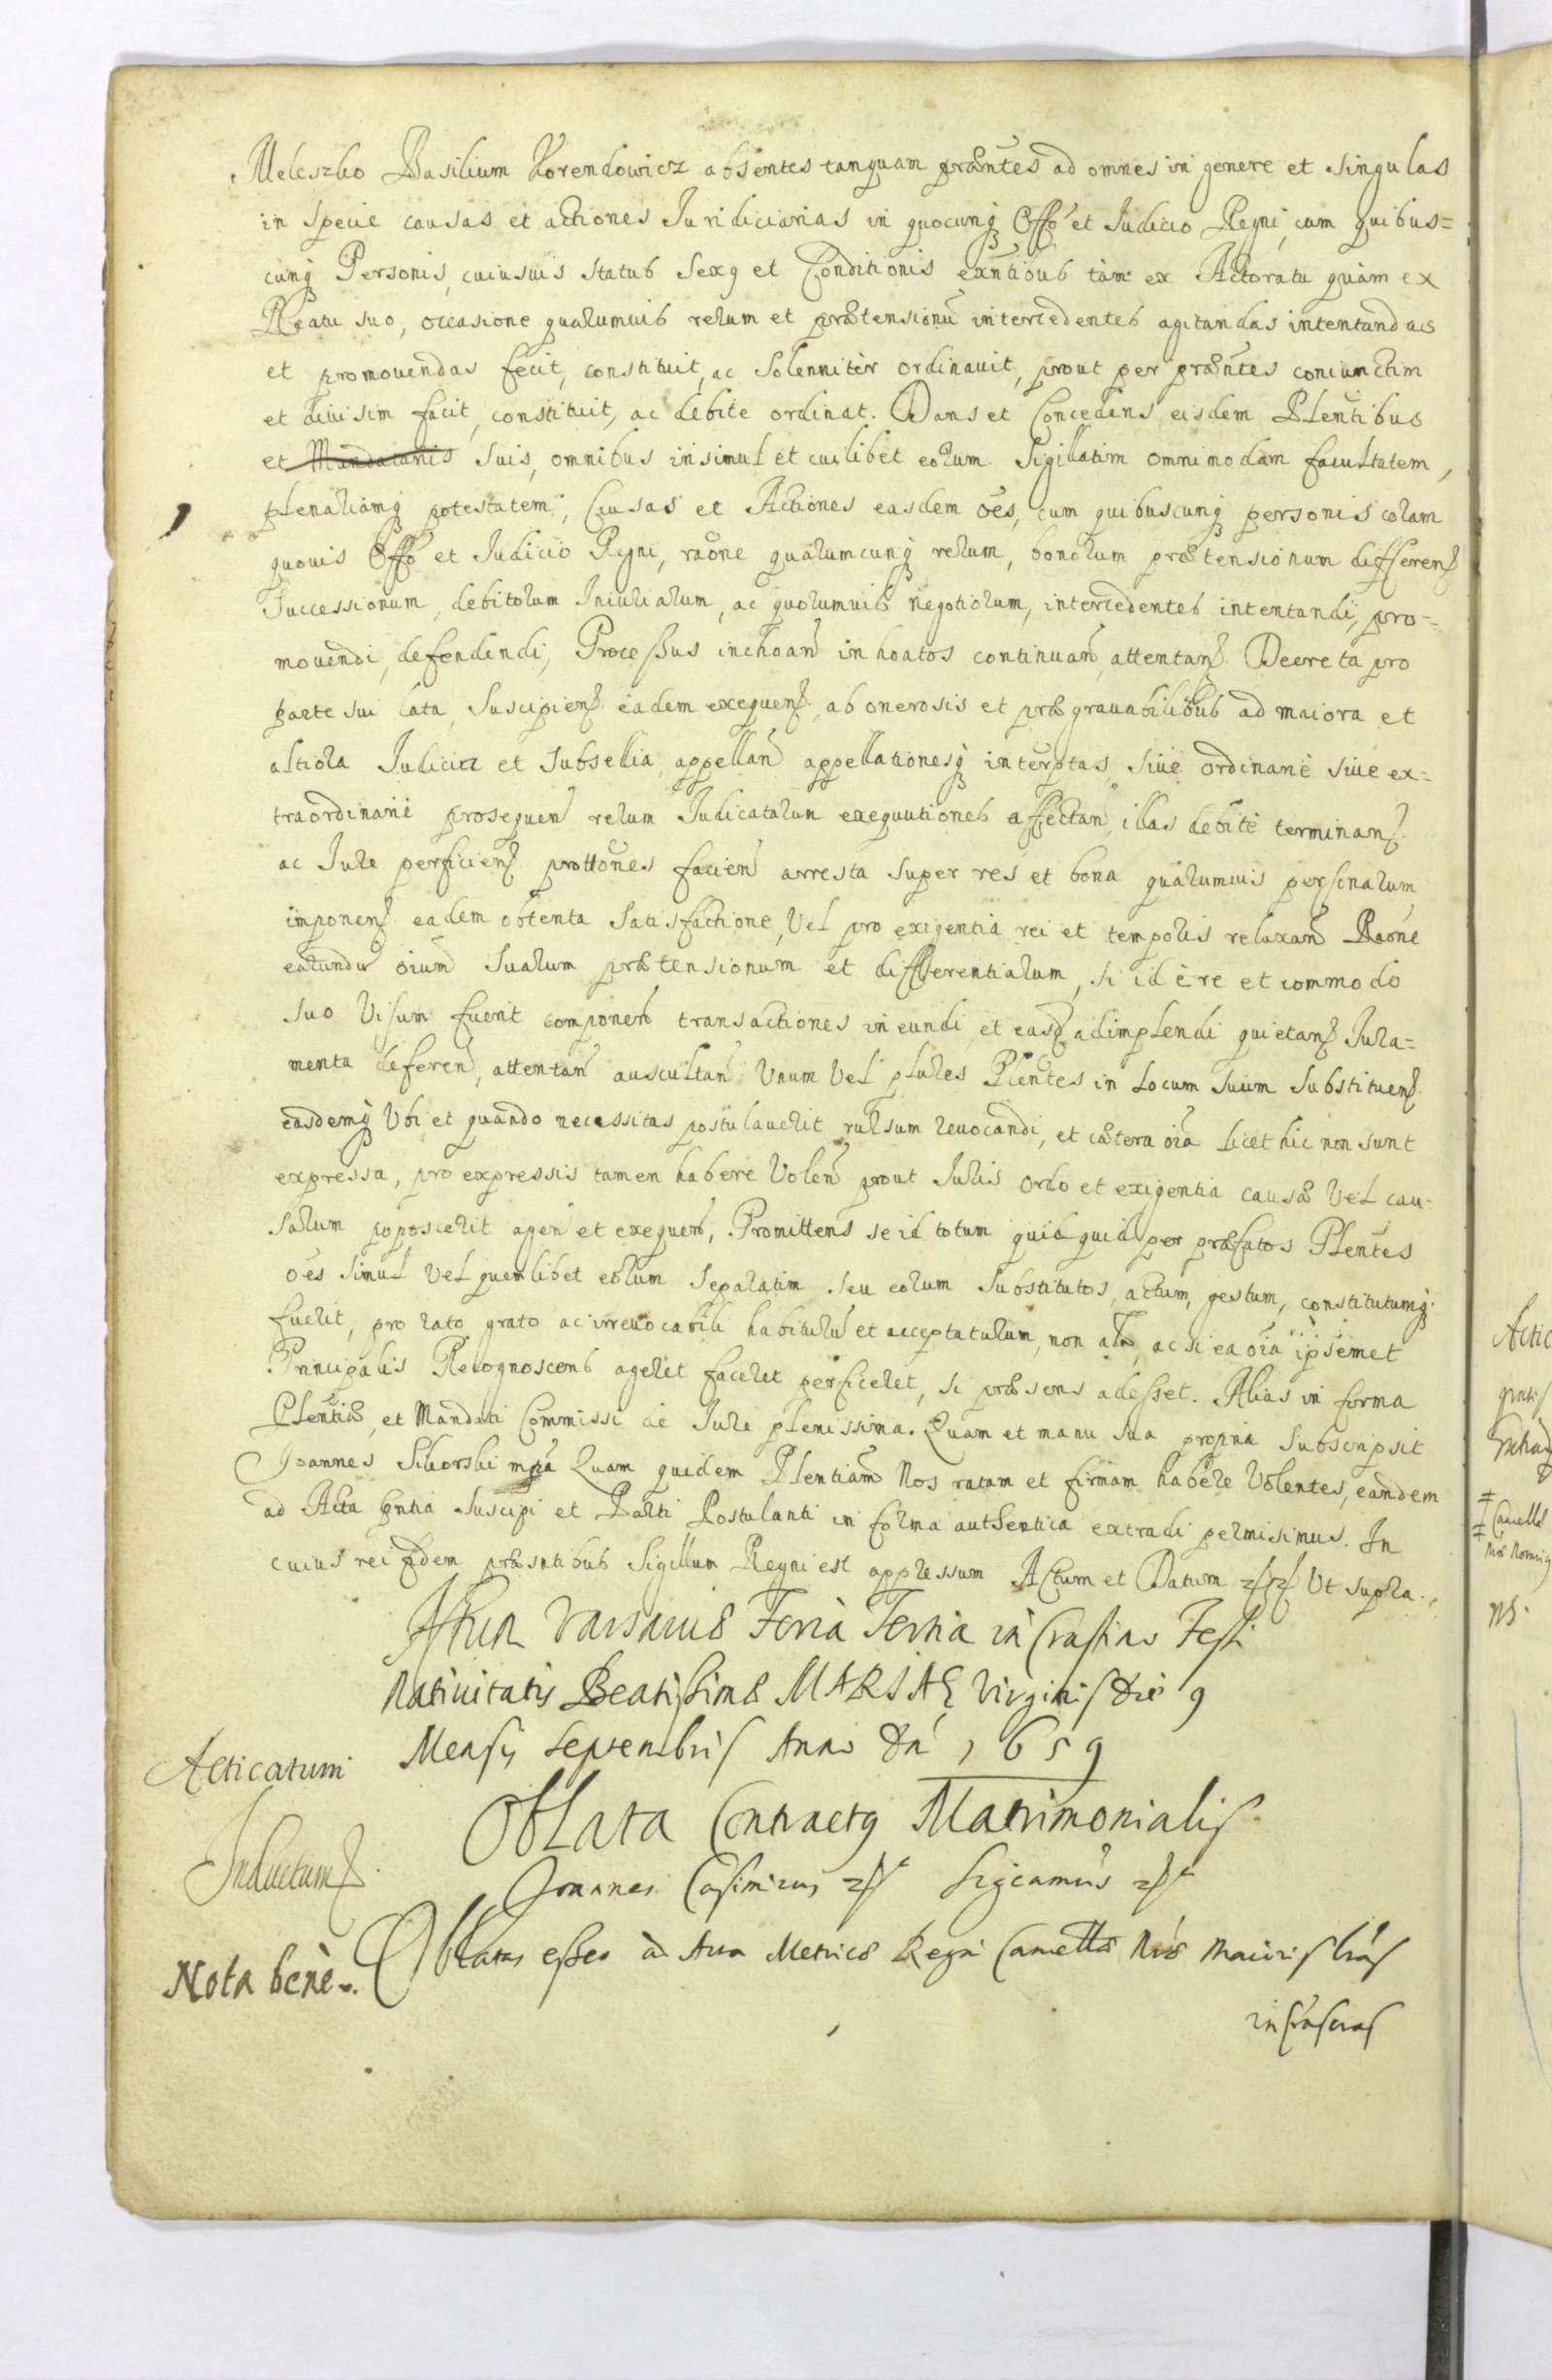 Meleszko Basilium Korendowicz absentes tanquam præntes ad omnes in genere et singulas
in specie causas et actiones Iuridiciarias in quocunq Offo et Iudicio Regni, cum quibus=
cunq Personis, cuiusuis status Sexq et Conditionis exntibus tam ex Actoratu quàm ex
Reatu suo, occasione quarumuis rerum et prætensionu intercedentes agitandas intentandas
et promouendas fecit, constituit, ac Solenniter ordinauit, prout per præntes coniunctim
et diuisim facit, constituit, ac debite ordinat. Dans et Concedens eisdem Plentibus
et Mandatariis suis, omnibus insimul et cuilibet eorum Sigillatim omnimodam facultatem,
plenariamq potestatem, Causas et Actiones easdem oes, cum quibuscunq personis coram
quouis Offo et Iudicio Regni, raone quarumcunq rerum, bonorum prætensionum differen
Successionum, debitorum Iniuriarum, ac quorumuis negotiorum, intercedentes intentandi, pro=
mouendi, defendendi, Processus inchoan inhoatos continuan, attentan. Decreta pro
parte sui lata, Suscipien eadem exequen, ab onerosis et prægrauabilibus ad maiora et
altiora Iudicia et Subsellia, appellan appellationesq interptas, siue ordinarie siue ex=
traordinarie prosequen rerum Iudicatarum exequutiones affectan, illas debite terminan
ac Iure perficien prottones facien arresta super res et bona quarumuis personarum,
imponen eadem obtenta Satisfactione, Vel pro exigentia rei et temporis relaxan Raone
earundu oium Suarum prætensionum et differentiarum, si id è re et commodo
suo Visum fuerit componen transactiones ineundi, et easd adimplendi quietan Iura=
menta deferen, attentan auscultan Unum Vel plures Plentes in Locum Suum Substituen
easdemq Ubi et quando necessitas postulauerit rursum reuocandi, et cætera oia licet hic non sunt
expressa, pro expressis tamen habere Volen prout Iuris Ordo et exigentia causæ Vel cau-
sarum poposcerit agen et exequen, Promittens se id totum quidquid per præfatos Plentes
oes Simul Vel quemlibet eorum Separatim Seu eorum Substitutos, actum, gestum, constitutumq
fuerit, pro rato grato ac irreuocabili habiturum et acceptaturum, non alr, ac si ea oia ipsemet
Principalis Recognoscens ageret faceret perficeret, si præsens adesset. Alias in forma
Plentiæ, et Mandati Commissi de Iure plenissima. Quam et manu sua propria Subscripsit
Joannes Sikorski mpa Quam quidem Plentiam Nos ratam et firmam habere Volentes, eandem
ad Acta pntia Suscipi et Parti Postulanti in forma authentica extradi permisimus. In
cuius rei fidem præsntibus Sigillum Regni est appressum Actum et Datum Ut supra.
Actum Varsauiæ Feria Tertia in Crastino Festi
Natiuitatis Beatissimæ MARIAE Virginis die 9
Mensis Septembris Anno Dn 1659
Acticatum
Oblata Contractq Matrimonialis
Inductum
Joannes Casimirus Significamus
Nota benè.
Oblatas esse ad Acta Metricæ Regni Cancellæ Nræ Maioris lras
infrascras